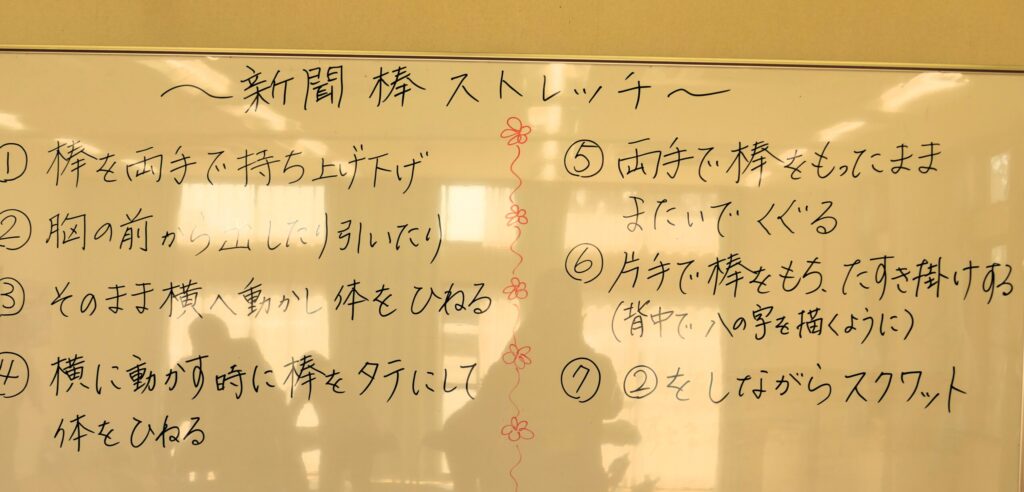 〜新聞棒ストレッチ〜
① 棒を両手で持ち上げ下げ
② 胸の前から出したり引いたり
③ そのまま横へ動かし体をひねる
④ 横に動かす時に棒をタテにして
体をひねる
⑤ 両手で棒をもったまま
またいでくぐる
⑥ 片手で棒をもち、たすき掛けする
(背中で八の字を描くように)
⑦ ②をしながらスクワット